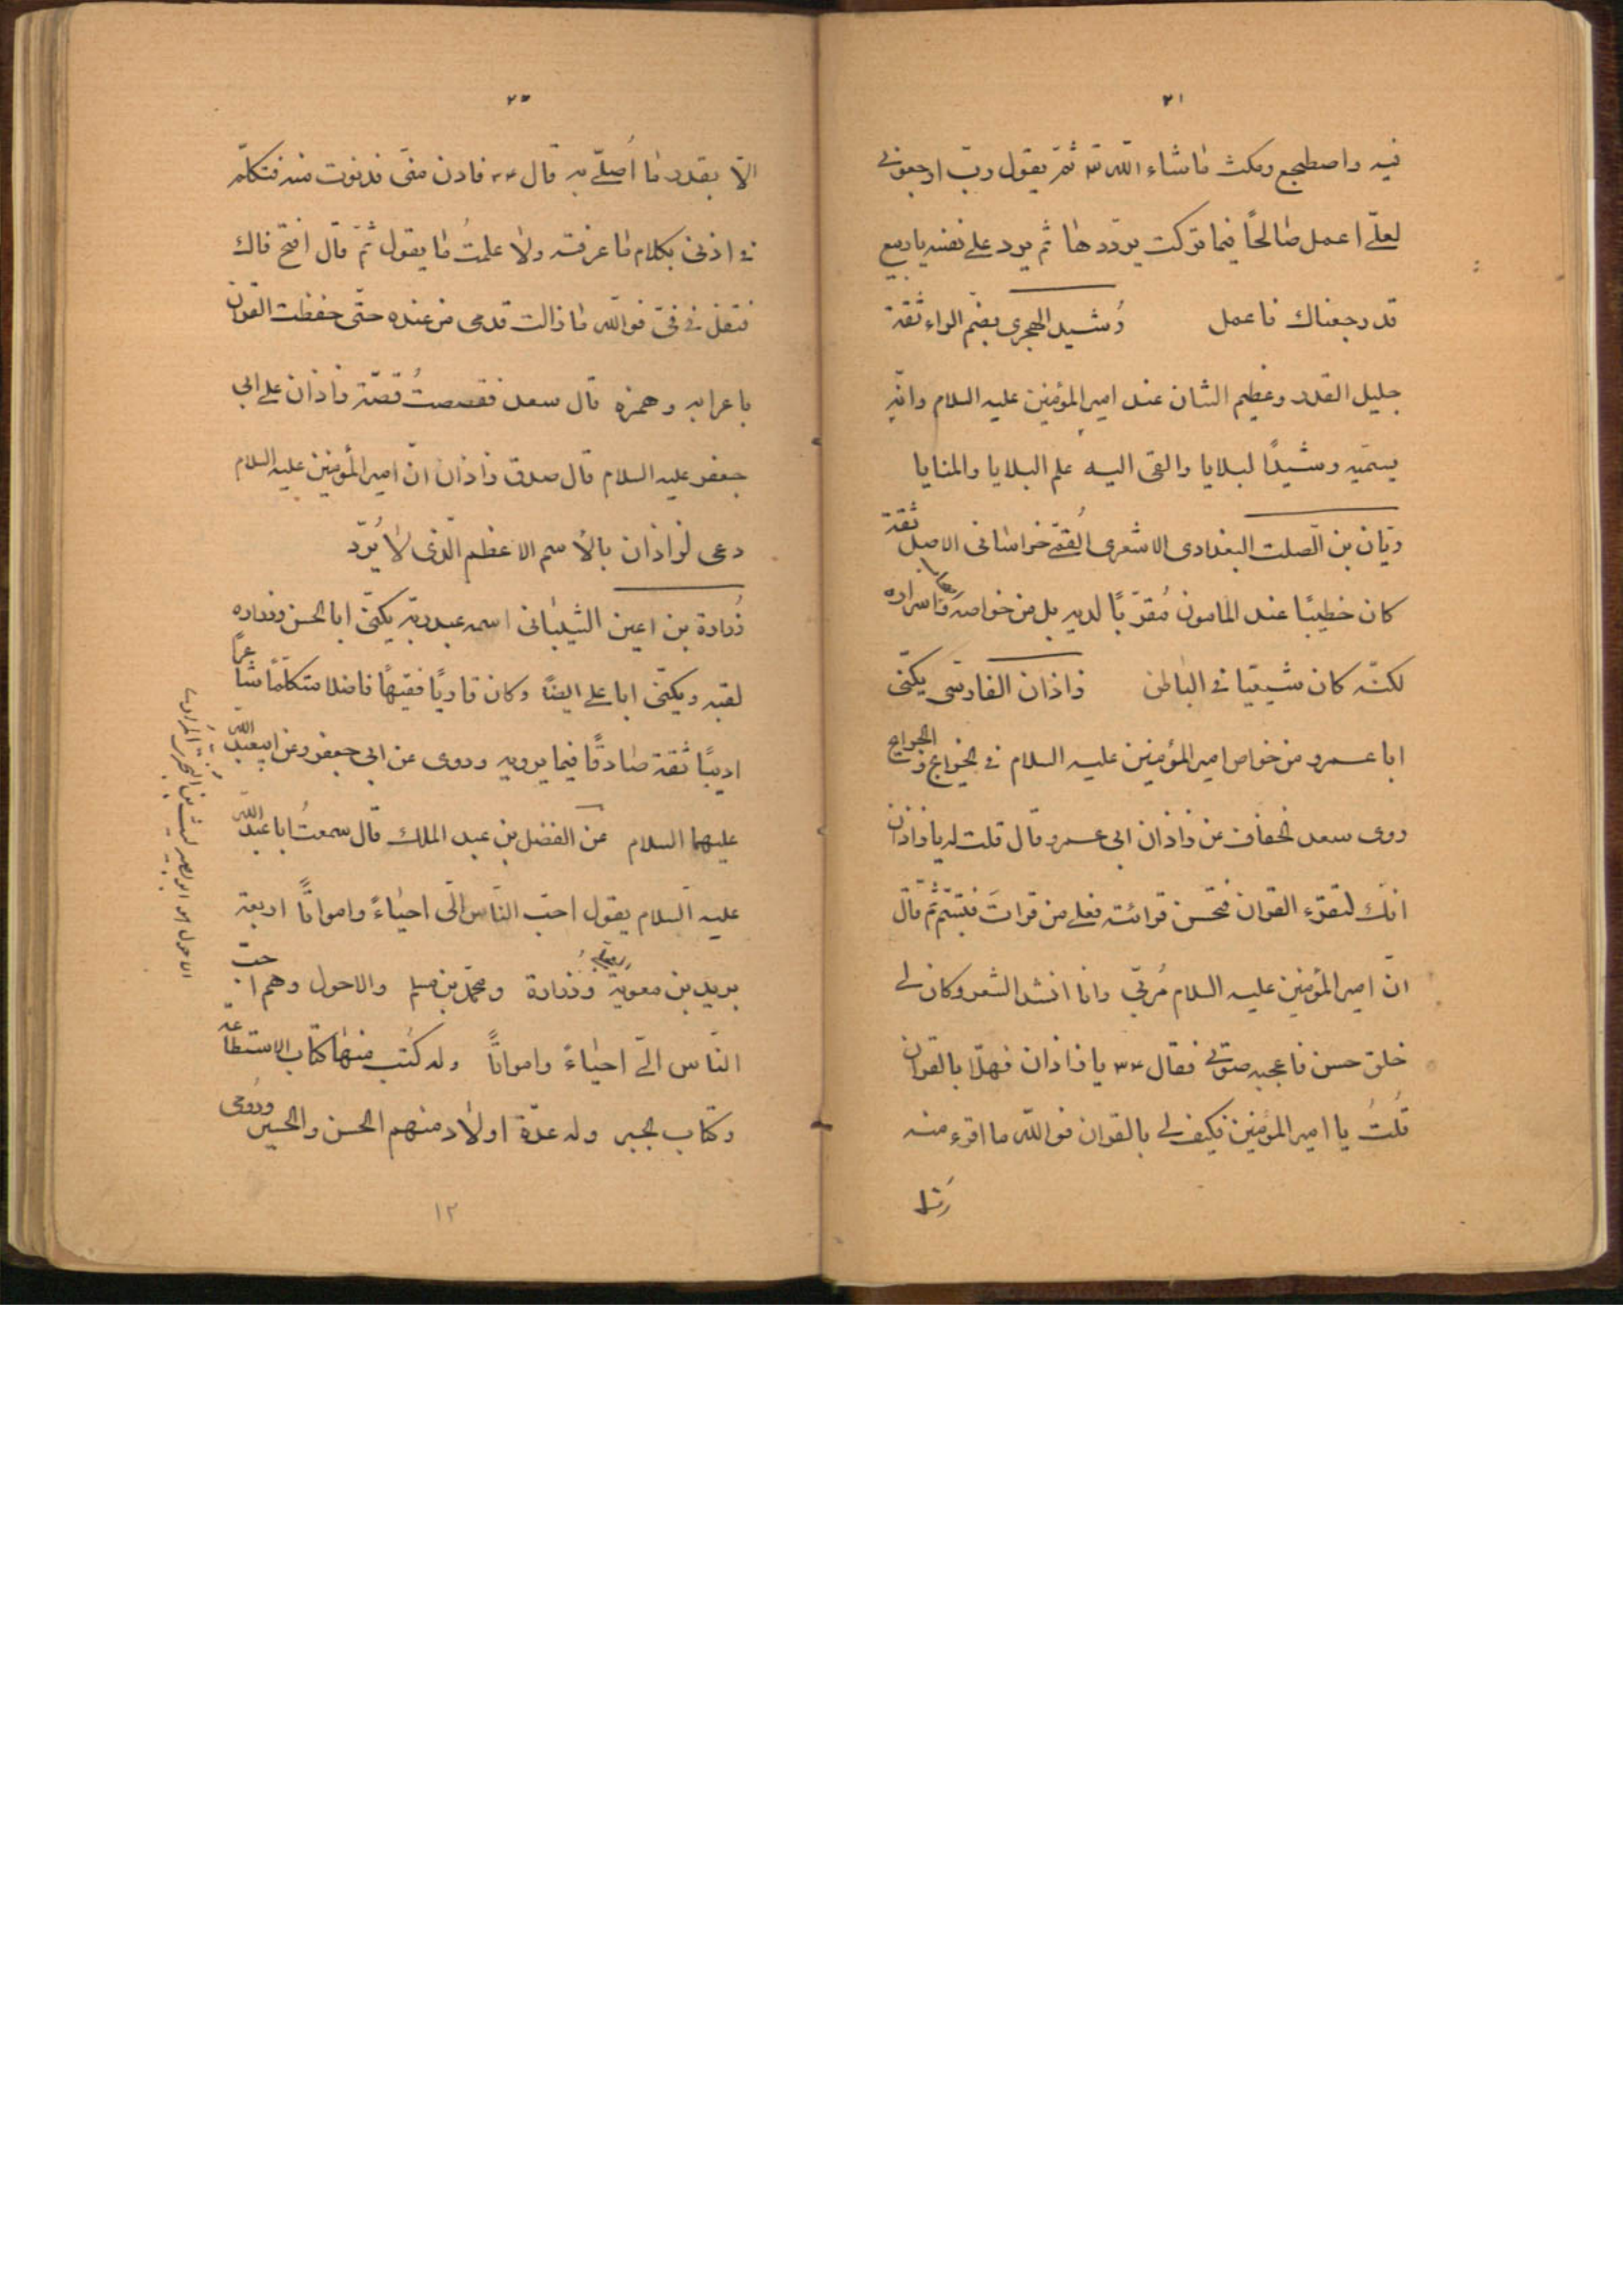 ٢١
فيه واضطجع ومكث ماشاء اللّه ثمّ يقول ربّ ارجعونى
لعلّى اعمل صالحًا فيما تركت يردّدها ثم يرد على نفسه ياربيع
قد رجعناك فاعمل رُشيد الهجرى بضمّ الراء ثقة
جليل القدر وعظيم الشان عند امير المؤمنين عليه السلام وانّه
يسمّيه رشيدًا لبلايا والقى اليه علم البلايا والمنايا
ريّان بن الصّلت البغدادى الاشعرى القمّى خراسانى الاصل ثقة
كان خطيبًا عند المامون مُقرّبًا لديه بل من خواصه واسراره
لكنّه كان شيعيّا فى الباطن زاذان الفارسّى يكنّى
ابا عمرو من خواص امير المؤمنين عليه السلام فى الخرائج
روى سعد الخفاف عن زاذان ابى عمرو قال قلت له يا زاذان
انّك لتقرء القران فتحسن قرائته فعلى من قرات فتبسّم ثمّ قال
انّ امير المؤمنين عليه السلام مُربّى وانا انشد الشعر وكان لى
خلق حسن فاعجبه صوتى فقال يا زاذان فهلّا بالقران
قلتُ يا امير المؤمنين فكيف لى بالقران فو اللّه ما اقرء منه
٢٢
الّا بقدر ما اُصلّى به قال فادن منّى فدنوت منه فتكلّم
فى اذنى بكلام ما عرفته ولا علمتُ ما يقول ثمّ قال افتح فاك
فتفل فى فىّ فو اللّه ما زالت قدمى من عنده حتّى حفظت القران
باعرابه وهمزه قال سعد فقصصتُ قصّة زاذان على ابى
جعفر عليه السلام قال صدق زاذان انّ امير المؤمنين عليه السلام
دعى لزاذان بالاسم الاعظم الّذى لا يُردّ
زُرارة بن اعين الشيبانى اسمه عبدربّه يكنّى ابا الحسن وزراره
لقبه ويكنّى ابا على ايضًا وكان قاريًا فقيهًا فاضلا متكلّمًا شاعرًا
اديبًا ثقة صادقًا فيما يرويه وروى عن ابى جعفر وعن ابيعبد اللّه
عليهما السلام عن الفضل بن عبد الملك قال سمعتُ ابا عبد اللّه
عليه السلام يقول احبّ النّاس الىّ احياءً وامواتًا اربعة
بريد بن معوية وزرارة ومحمّد بن مسلم والاحول وهم احبّ
النّاس الىّ احياءً وامواتًا وله كتب منها كتاب الاستطاعة
وكتاب الجبر وله عدّة اولاد منهم الحسن والحسين ورُومى
١٢